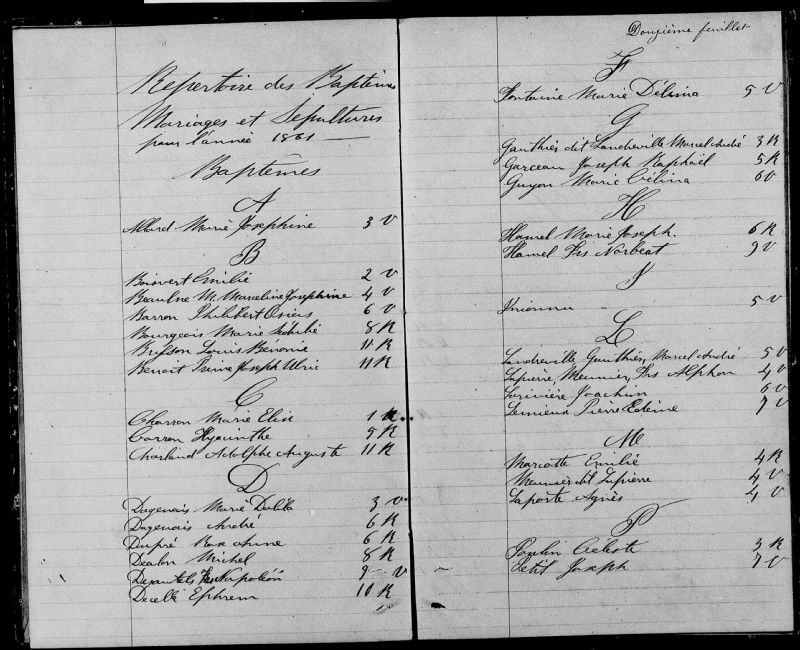 Repertoire des Baptêmes
Mariages et Sepultures
pour l'année 1861
Baptêmes
A
Allard Marie Josephine 3 V
B
Boisvert Emilie 2 V
Beaulne M. Marceline Josephine 4 V
Barron Philibert Osias 6 V
Bourgeois Marie 8 R
Brisson Louis 11 R
Benoit Pierre Joseph Ulric 11 R
C
Charron Marie Elise 1 R
Carron Hyacinthe 5 R
Charland Adolphe Auguste 11 R
D
Dagenais Marie 3 V
Dagenais André 6 R
Dupré Rose Anne 6 R
Michel 8 R
Napoléon 9 V
Decelle Ephrem 10 R
Douzième feuillet
F
Fontaine Marie Délima 5 V
G
Gauthier dit Landreville Marcel André 3 R
Garceau Joseph Raphaël 5 R
Guyon Marie Célina 6 V
H
Hamel Marie Joseph. 6 R
Hamel Frs Norbert 9 V
I
Inconnu 5 V
L
Landreville Gauthier, Marcel André 5 V
Lapierre, Meunier, Frs Alphon 4 V
Larivière Joachim 6 V
Lemieux Pierre 7 V
M
Marcotte Emilie 4 R
Meunier dit Lapierre 4 V
Laporte Agnès 4 V
P
Poulin Céleste 3 R
Petit Joseph 7 V